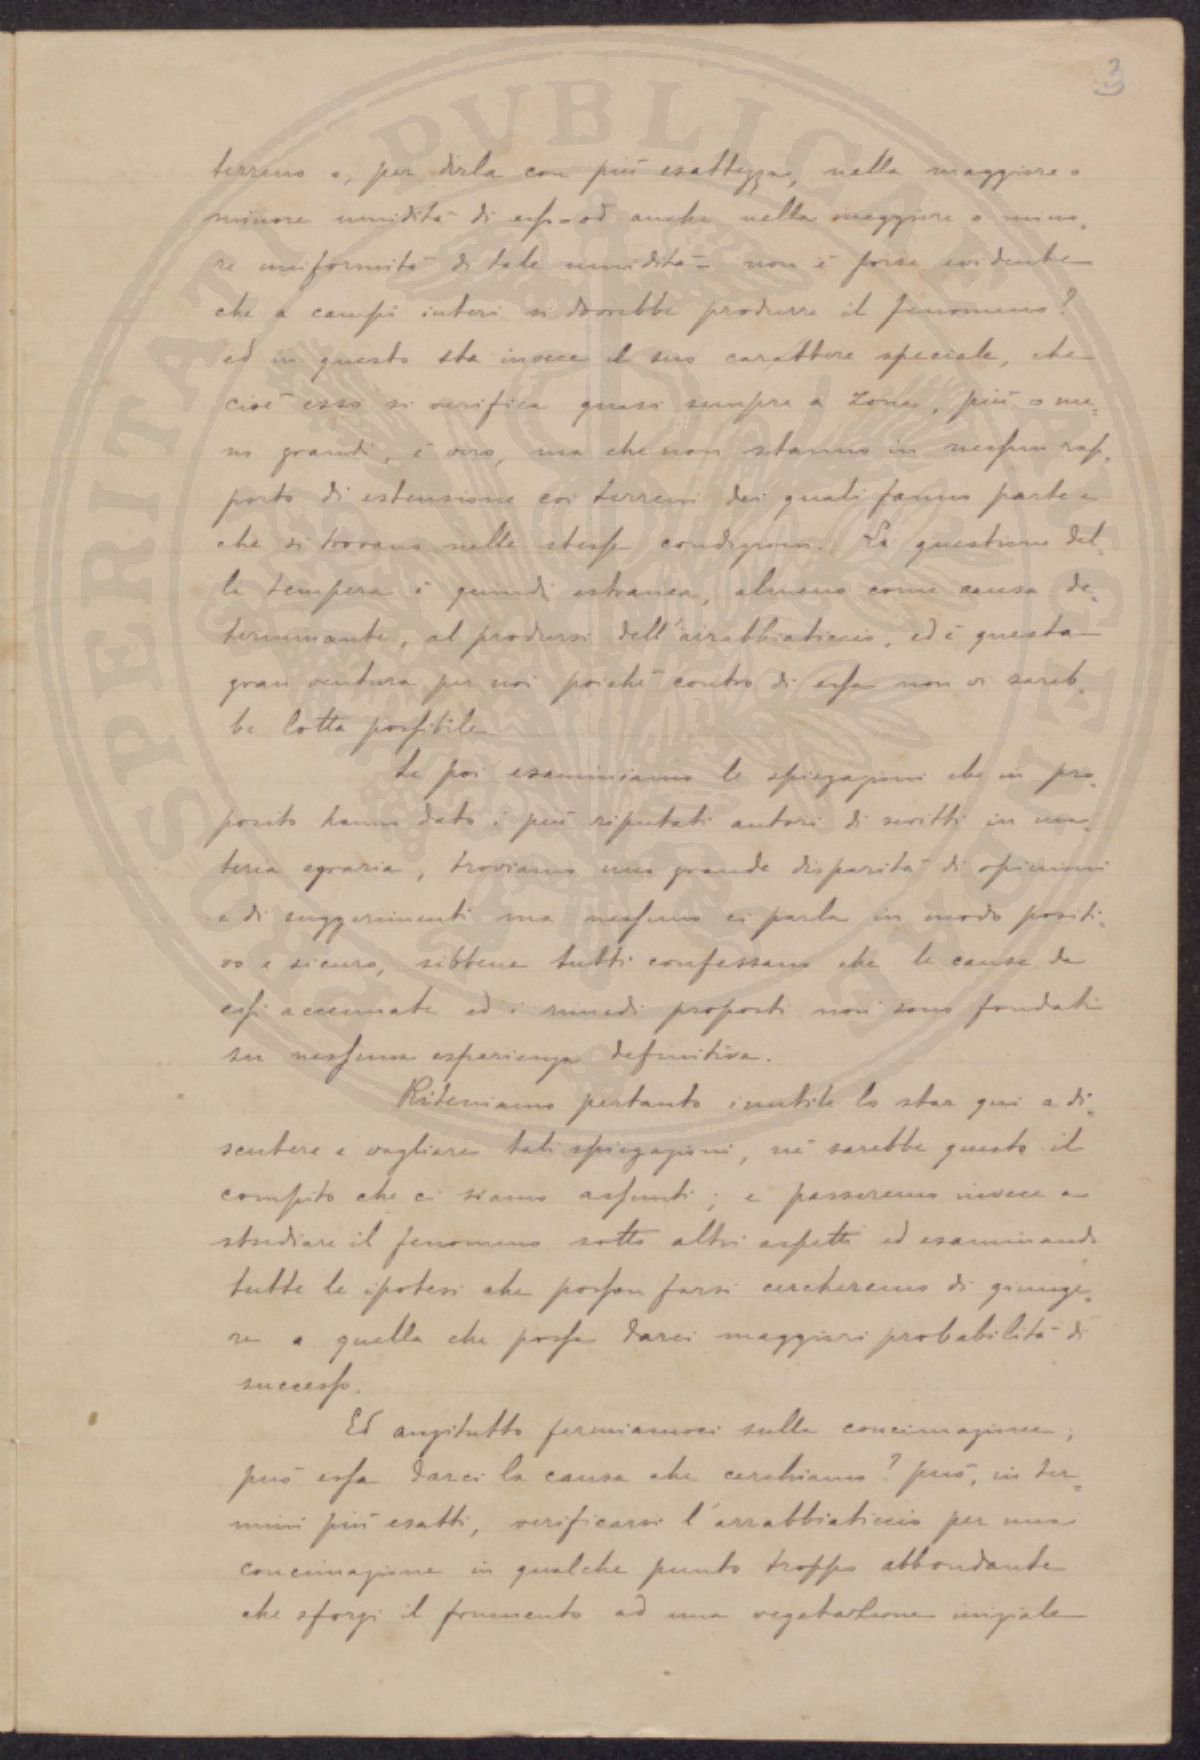 3
terreno o, per dirla con più esattezza, nella maggiore o
minore umidità di esso od anche nella maggiore o mino-
re uniformità di tale umidità - non è forse evidente
che a campi interi si dovrebbe produrre il fenomeno?
ed in questo sta invece il suo carattere speciale, che
cioè esso si verifica quasi sempre a zone, più o me-
no grandi, è vero, ma che non stanno in nessun rap-
porto di estensione coi terreni dei quali fanno parte e
che si trovano nelle stesse condizioni. La questione del-
la tempera è quindi estranea, almeno come causa de-
terminante, al prodursi dell'arrabbiaticcio, ed è questa
gran ventura per noi poichè contro di essa non vi sareb-
be lotta possibile
Se poi esaminiamo le spiegazioni che in pro-
posito hanno dato i più riputati autori di scritti in ma-
teria agraria, troviamo una grande disparità di opinioni
e di suggerimenti ma nessuno ci parla in modo positi-
vo e sicuro, sibbene tutti confessano che le cause da
essi accennate ed i rimedi proposti non sono fondati
su nessuna esperienza definitiva.
Riteniamo pertanto inutile lo star qui a di-
scutere e vagliare tali spiegazioni, nè sarebbe questo il
compito che ci siamo assunti; e passeremo invece a
studiare il fenomeno sotto altri aspetti ed esaminando
tutte le ipotesi che posson farsi cercheremo di giunge-
re a quella che possa darci maggiori probabilità di
successo.
Ed anzitutto fermiamoci sulla concimazione;
può essa darci la causa che cerchiamo? può, in ter-
mini più esatti, verificarsi l'arrabbiaticcio per una
concimazione in qualche punto troppo abbondante
che sforzi il frumento ad una vegetazione iniziale
PROSPERITATI PUBLICAE AUGENDAE